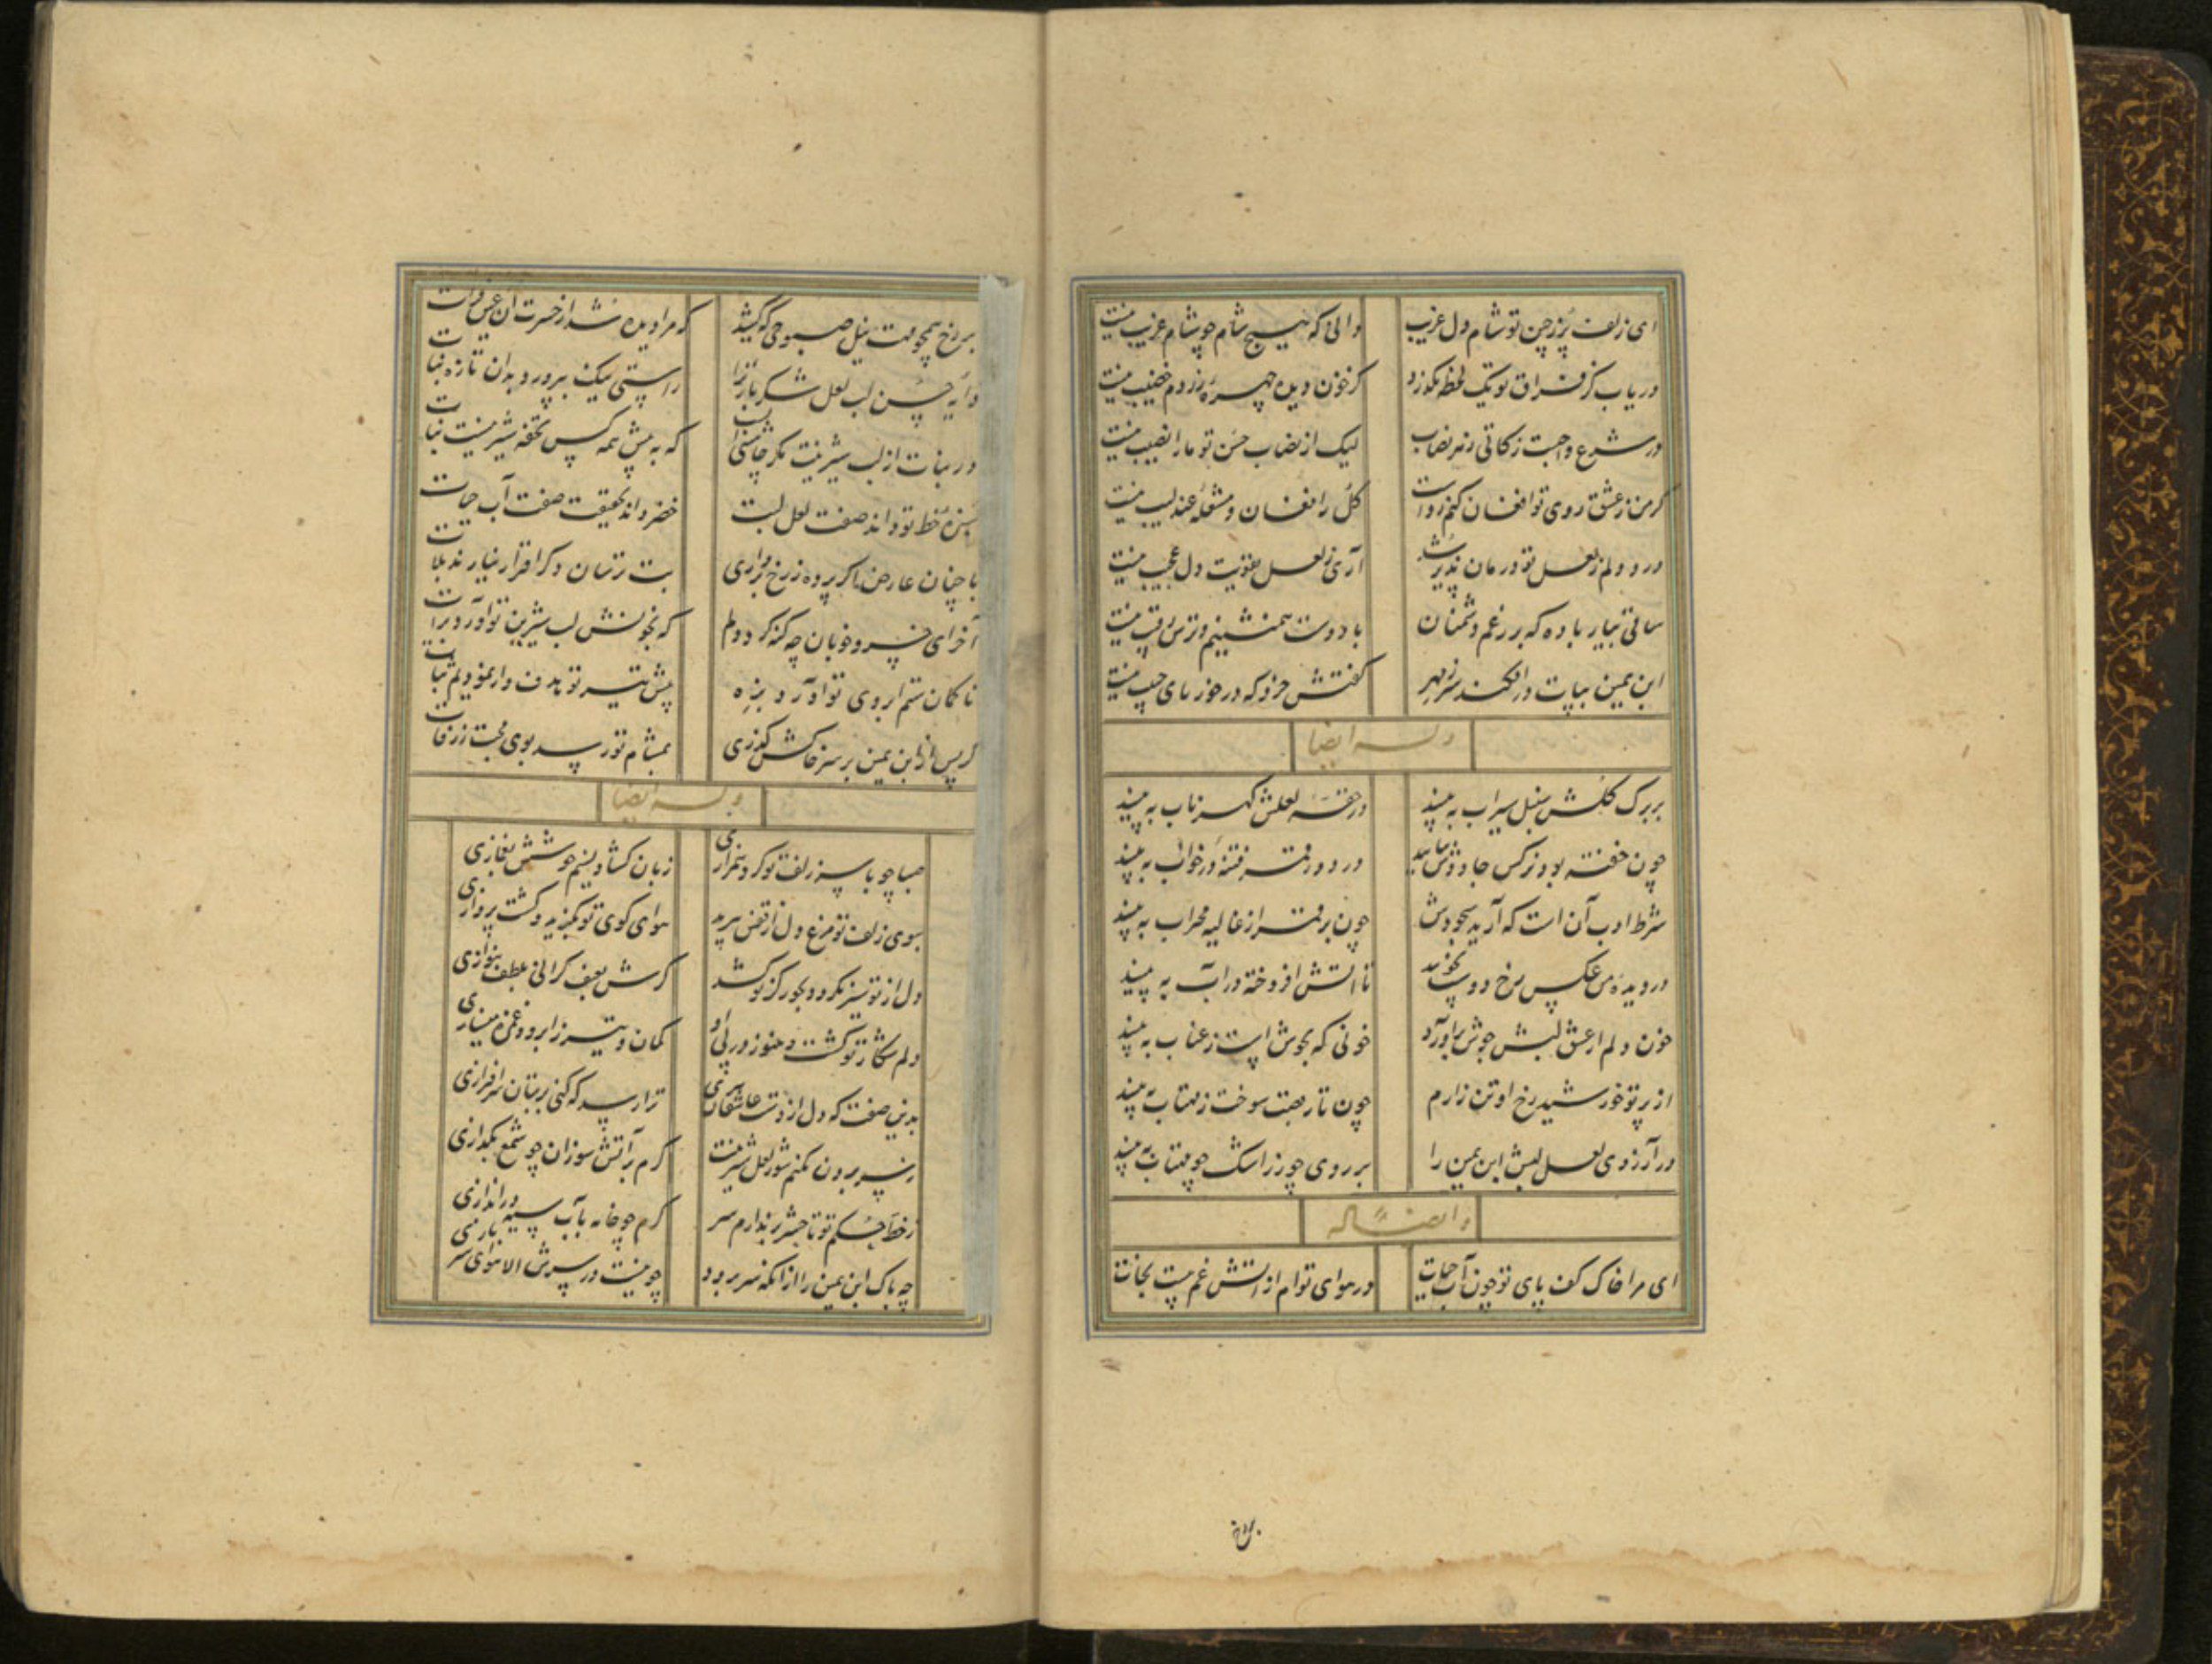 ای زلف پرزچین تو شام دل غریب والی که هیچ شام چو شام غریب نیست
دریاب کز فراق تو یک لحظه نگذرد کز خون دیده چهره زردم خضیب نیست
در شرع واجبست زکاتی ز هر نصاب لیک از نصاب حسن تو ما را نصیب نیست
گر من ز عشق روی تو افغان کنم رواست گل را فغان و مشغله عندلیب نیست
درد دلم ز لعل تو درمان پذیر شد آری ز لعل تقویت دل عجیب نیست
ساقی بیار باده که بر رغم دشمنان با دوست همنشینم و ترس رقیب نیست
ابن یمین بپات درافکند سر ز مهر گفتش خرد که درخور پای حبیب نیست
وله ایضا
بر برگ گلش سنبل سیراب به بینید در حقه لعلش گهر ناب به بینید
چون خفته بود نرگس جادوش در دور قمر فتنه در خواب به بینید
شرط ادب آن است که آرید سجودش چون بر قمر از غالیه محراب به بینید
در دیده من عکس رخ دوست تا آتش افروخته در آب به بینید
خون دلم از عشق لبش جوش برآورد خونی که بجوش است ز عناب به بینید
از پرتو خورشید رخ او تن زارم چون تار قصب سوخت ز مهتاب به بینید
در آرزوی لعل لبش ابن یمین را بر روی چو زر اشک چو به بینید
وایضا له
ای مرا خاک کف پای تو چون آب حیات در هوای توام از آتش غم نیست نجات
بر رخ همچو مهت نیل صبوحی که کشید که مرا دیده شد از حسرت آن عین فرات
دایه حسن لب لعل شکربار ترا راستی نیک بپرورد بدان تازه نبات
در نبات از لب شیرینت مگر چاشنی است که به پیش همه کس تحفه شیرینست نبات
سبزه خط تو داند صفت لعل لبت خضر داند بحقیقت صفت آب حیات
با چنان عارض اگر پرده ز رخ برداری بت پرستان دگر اقرار نیارند بلات
آخر ای خسرو خوبان چه گنه کرد دلم که بخونش لب شیرین تو آورد برات
تا کمان ستم ابروی تو آورد بزه پیش تیر تو هدف وار نمودیم ثبات
گر پس از ابن یمین بر سر خاکش گذری بمشام تو رسد بوی محبت ز رفات
وله ایضا
صبا چو با سر زلف تو کرد زبان گشاد نسیم خوشش بغمازی
بسوی زلف تو مرغ دل از قفس بپرید هوای کوی تو بگزید و گشت پروازی
دل از تو سیر نگردد بجور گرش بعنف گر از بلطف بنوازی
دلم شکار تو گشت و هنوز در پی او کمان و تیر ز ابرو و غمزه میسازی
بدین صفت که دل از دست عاشقان ببری ترا رسد که کنی بر بتان سرافرازی
ز سر برون نکنم شور لعل شیرینت گرم بر آتش سوزان چو شمع بگدازی
ز خط حکم تو تا حشر بر ندارم سر گرم چو خامه بآب سیه دراندازی
چه باک ابن یمین را از آنکه سر برود چو نیست در سرش الا هوای سربازی